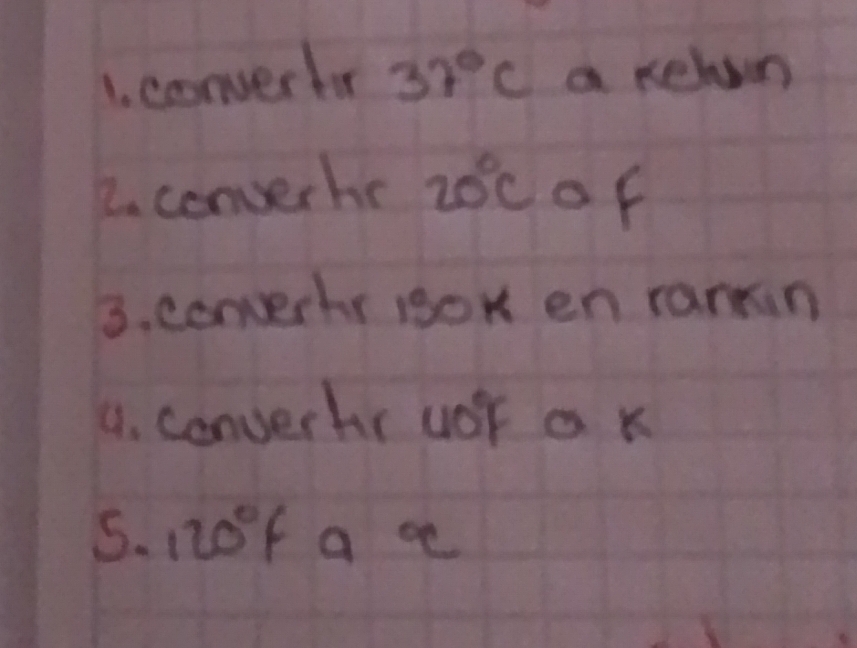 1. convertir 37°C a Kelvin
2. convertir 20°C a F
3. convertir 150K en rankin
4. convertir 40°F a K
5. 120°F a °C